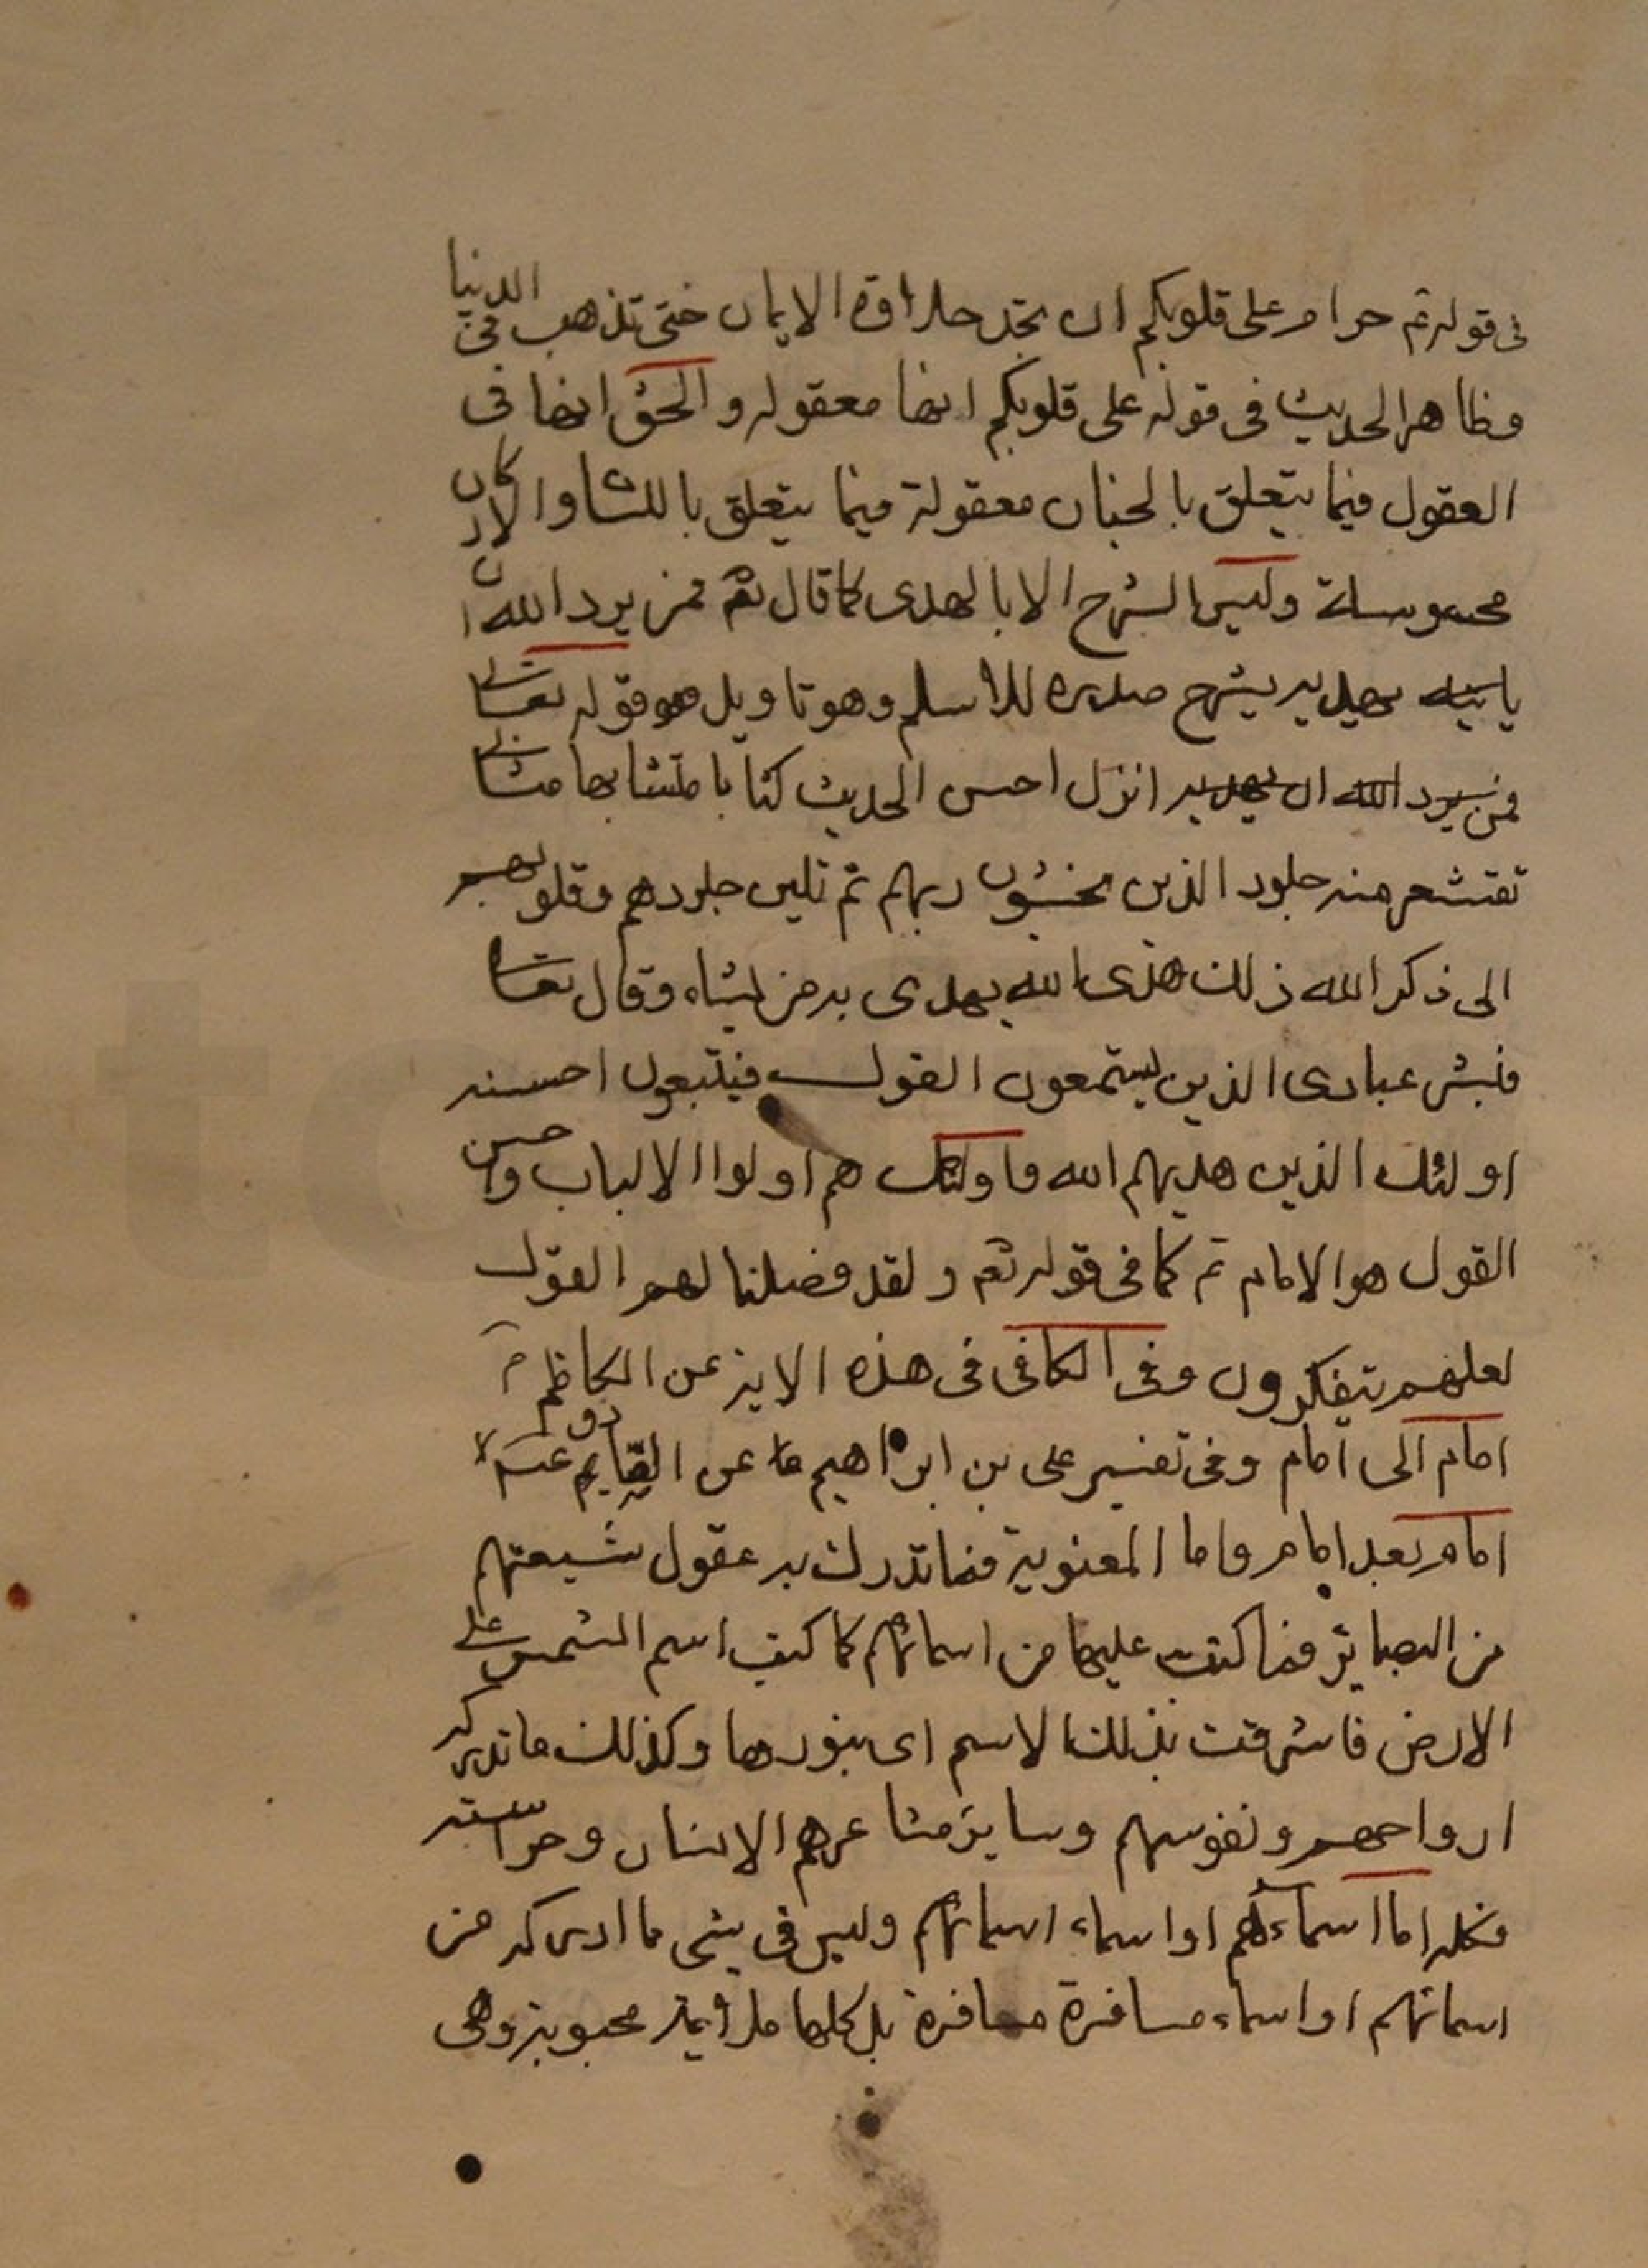 في قوله تم حرام على قلوبكم ان تجد حلاوة الايمان حتى تذهب في الدنيا
وظاهر الحديث في قوله على قلوبكم انها معقوله والحق انها في
العقول فيما يتعلق بالجنان معقولة فيما يتعلق باللسان والاركان
محسوسة وليس الشرح الا بالهدى كما قال تع فمن يرد الله ان
يهديه يشرح صدره للاسلم وهو تاويل قوله تعالى
انزل احسن الحديث كتابا متشابها مثاني
تقشعر منه جلود الذين يخشون ربهم ثم تلين جلودهم وقلوبهم
الى ذكر الله ذلك هدى الله يهدى به من يشاء وقال تعالى
فبشر عبادى الذين يستمعون القول فيتبعون احسنه
اولئك الذين هديهم الله واولئك هم اولوا الالباب واحسن
القول هو الامام تم كما في قوله تع ولقد وصلنا لهم القول
لعلهم يتفكرون وفى الكافى فى هذه الاية عن الكاظم
امام الى امام وفى تفسير على بن ابراهيم عن الصادق
امام بعد امام واما المعنوية فما تدرك به عقول شيعتهم
من البصاير فما كتب عليها من اسمائهم كما كتب اسم الشمس على
الارض فاشرقت بذلك الاسم اى بنورها وكذلك ما تدركه
ارواحهم ونفوسهم وساير مشاعرهم الانسان وحواسه
فكله اما اسماءهم او اسماء اسمائهم وليس فى شى ما ادركه من
اسمائهم او اسماء مسافرة بل كلها محبوبة وهى